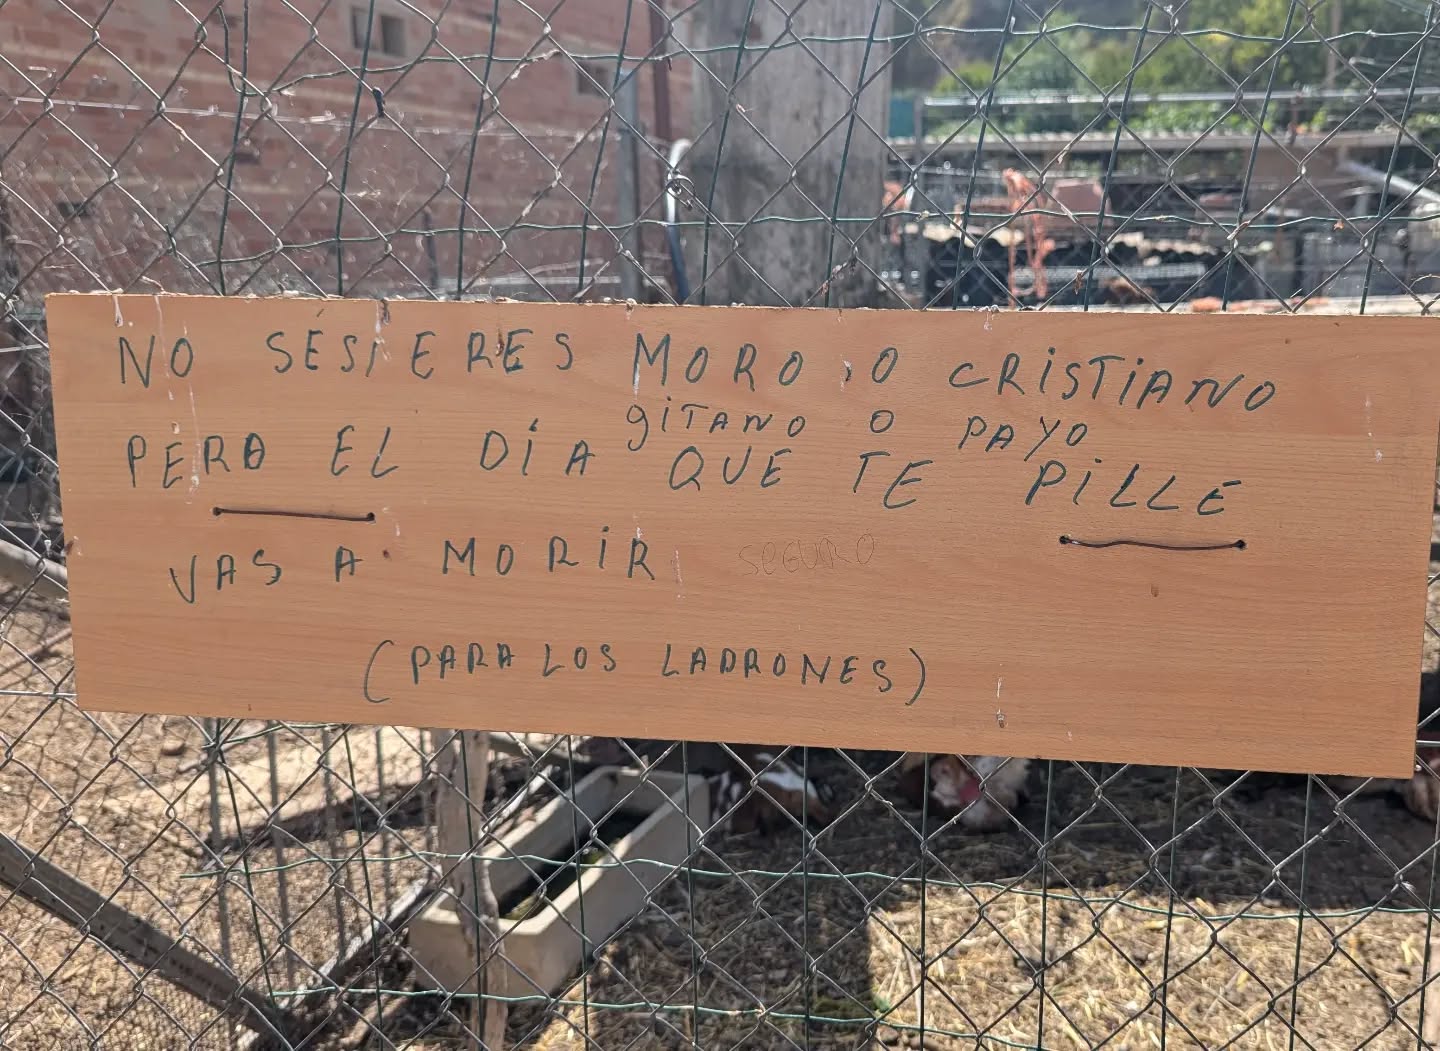 NO SÉSI ERES MORO, O CRISTIANO
gITANO O PAYO
PERO EL DÍA QUE TE PILLE
VAS A MORIR SEGURO
(PARA LOS LADRONES)